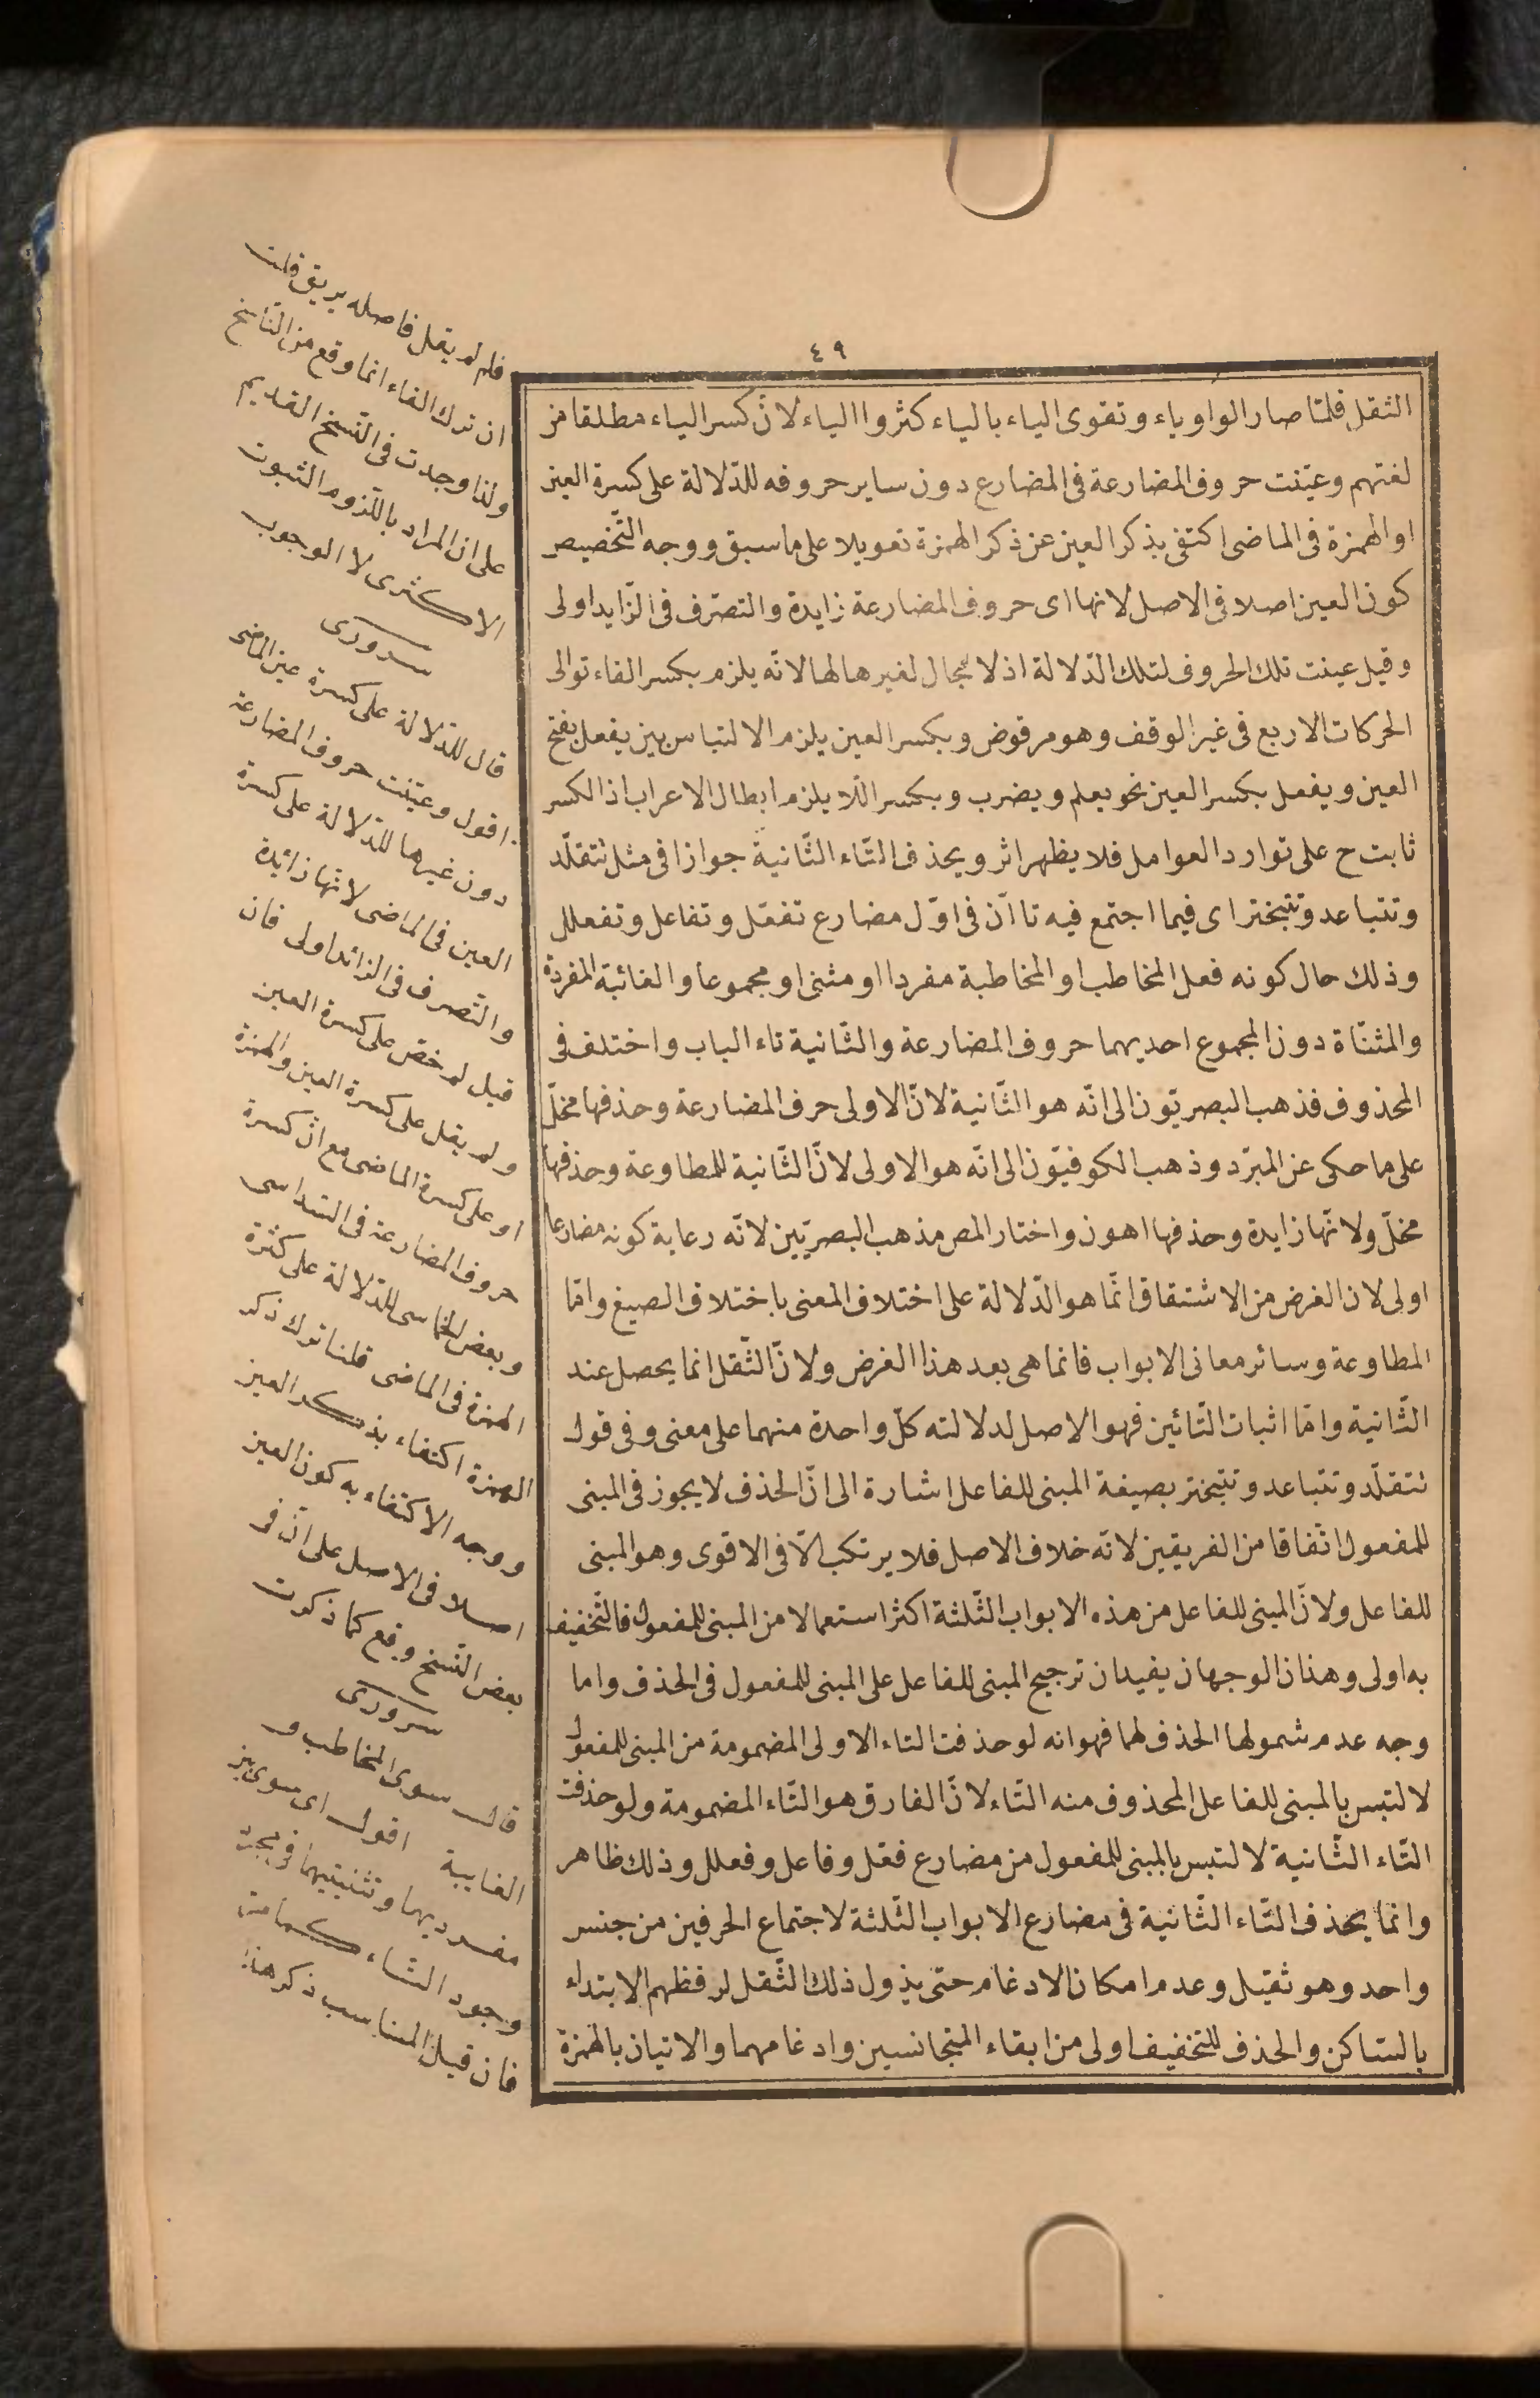 ٤٩
الثقل فلما صار الواو ياء وتقوى الياء بالياء كثروا الياء لانّ كسر الياء مطلقا من
لغتهم وعيّنت حروف المضارعة فى المضارع دون ساير حروفه للدّلالة على كسرة العين
او الهمزة فى الماضى اكتفى بذكر العين عن ذكر الهمزة تعويلا على ما سبق ووجه التّخصيص
كون العين اصلا فى الاصل لانها اى حروف المضارعة زايدة والتصرّف فى الزّايد اولى
وقيل عينت تلك الحروف لتلك الدّلالة اذ لا مجال لغيرها لها لانّه يلزم بكسر الفاء توالى
الحركات الاربع فى غير الوقف وهو مرفوض وبكسر العين يلزم الالتباس بين يفعل بفتح
العين ويفعل بكسر العين نحو يعلم ويضرب وبكسر اللّام يلزم ابطال الاعراب اذ الكسر
ثابت ح على توارد العوامل فلا يظهر اثر ويحذف التّاء الثّانية جوازا فى مثل تتقلّد
وتتباعد وتتبختر اى فيما اجتمع فيه تاآن فى اوّل مضارع تفعّل وتفاعل وتفعلل
وذلك حال كونه فعل المخاطب او المخاطبة مفردا او مثنى او مجموعا والغائبة المفردة
والمثنّاة دون المجموع احديهما حروف المضارعة والثّانية تاء الباب واختلف فى
المحذوف فذهب البصريّون الى انّه هو الثّانية لانّ الاولى حرف المضارعة وحذفها مخلّ
على ما حكى عن المبرّد وذهب الكوفيّون الى انّه هو الاولى لانّ الثّانية للمطاوعة وحذفها
مخلّ ولانّها زايدة وحذفها اهون واختار المص مذهب البصريّين لانّه رعاية كونه مضارعا
اولى لان الغرض من الاشتقاق انّما هو الدّلالة على اختلاف المعنى باختلاف الصيغ وامّا
المطاوعة وسائر معانى الابواب فانما هى بعد هذا الغرض ولانّ الثّقل انما يحصل عند
الثّانية وامّا اثبات التّائين فهو الاصل لدلالته كلّ واحدة منهما على معنى وفى قول
تتقلّد وتتباعد وتتبختر بصيغة المبنى للفاعل اشارة الى انّ الحذف لا يجوز فى المبنى
للمفعول اتّفاقا من الفريقين لانّه خلاف الاصل فلا يرتكب الّا فى الاقوى وهو المبنى
للفاعل ولانّ المبنى للفاعل من هذه الابواب الثّلثة اكثر استعمالا من المبنى للمفعول فالتّخفيف
به اولى وهذان الوجهان يفيدان ترجيح المبنى للفاعل على المبنى للمفعول فى الحذف واما
وجه عدم شمولها الحذف لهما فهو انه لو حذفت التاء الاولى المضمومة من المبنى للمفعول
لالتبس بالمبنى للفاعل المحذوف منه التّاء لانّ الفارق هو التّاء المضمومة ولو حذفت
التّاء الثّانية لالتبس بالمبنى للمفعول من مضارع فعّل وفاعل وفعلل وذلك ظاهر
وانما يحذف التّاء الثّانية فى مضارع الابواب الثّلثة لاجتماع الحرفين من جنس
واحد وهو ثقيل وعدم امكان الادغام حتى يزول ذلك الثّقل لرفظهم الابتداء
بالسّاكن والحذف للتخفيف اولى من ابقاء المتجانسين وادغامهما والاتيان بالهمزة
فلم لم يقل فاصله يريق قلت
ان ترك الفاء انما وقع من النّاسخ
ولنا وجدت فى النّسخ القديم
على ان المراد باللّزوم الثبوت
الاكثرى لا الوجوب
سرورى
قال للدّلالة على كسرة عين الماضى
اقول وعيّنت حروف المضارعة
دون غيرها للدّلالة على كسرة
العين فى الماضى لانّها زائدة
والتّصرف فى الزائد اولى فان
قيل لم خصّ على كسرة العين
ولم يقل على كسرة العين والهمزة
او على كسرة الماضى مع انّ كسرة
حروف المضارعة فى السّداسى
وبعض الخماسى للدّلالة على كثرة
الهمزة فى الماضى قلنا ترك ذكر
الهمزة اكتفاء بذكر العين
ووجه الاكتفاء به كون العين
اصلا فى الاصل على انّ فى
بعض النّسخ وقع كما ذكرت
سرورى
قال سوى المخاطب و
الغايبة اقول اى سوى بين
مفرديهما وتثنيتيهما فى
وجود التاء كما مرّ
فان قيل المناسب ذكر هذا